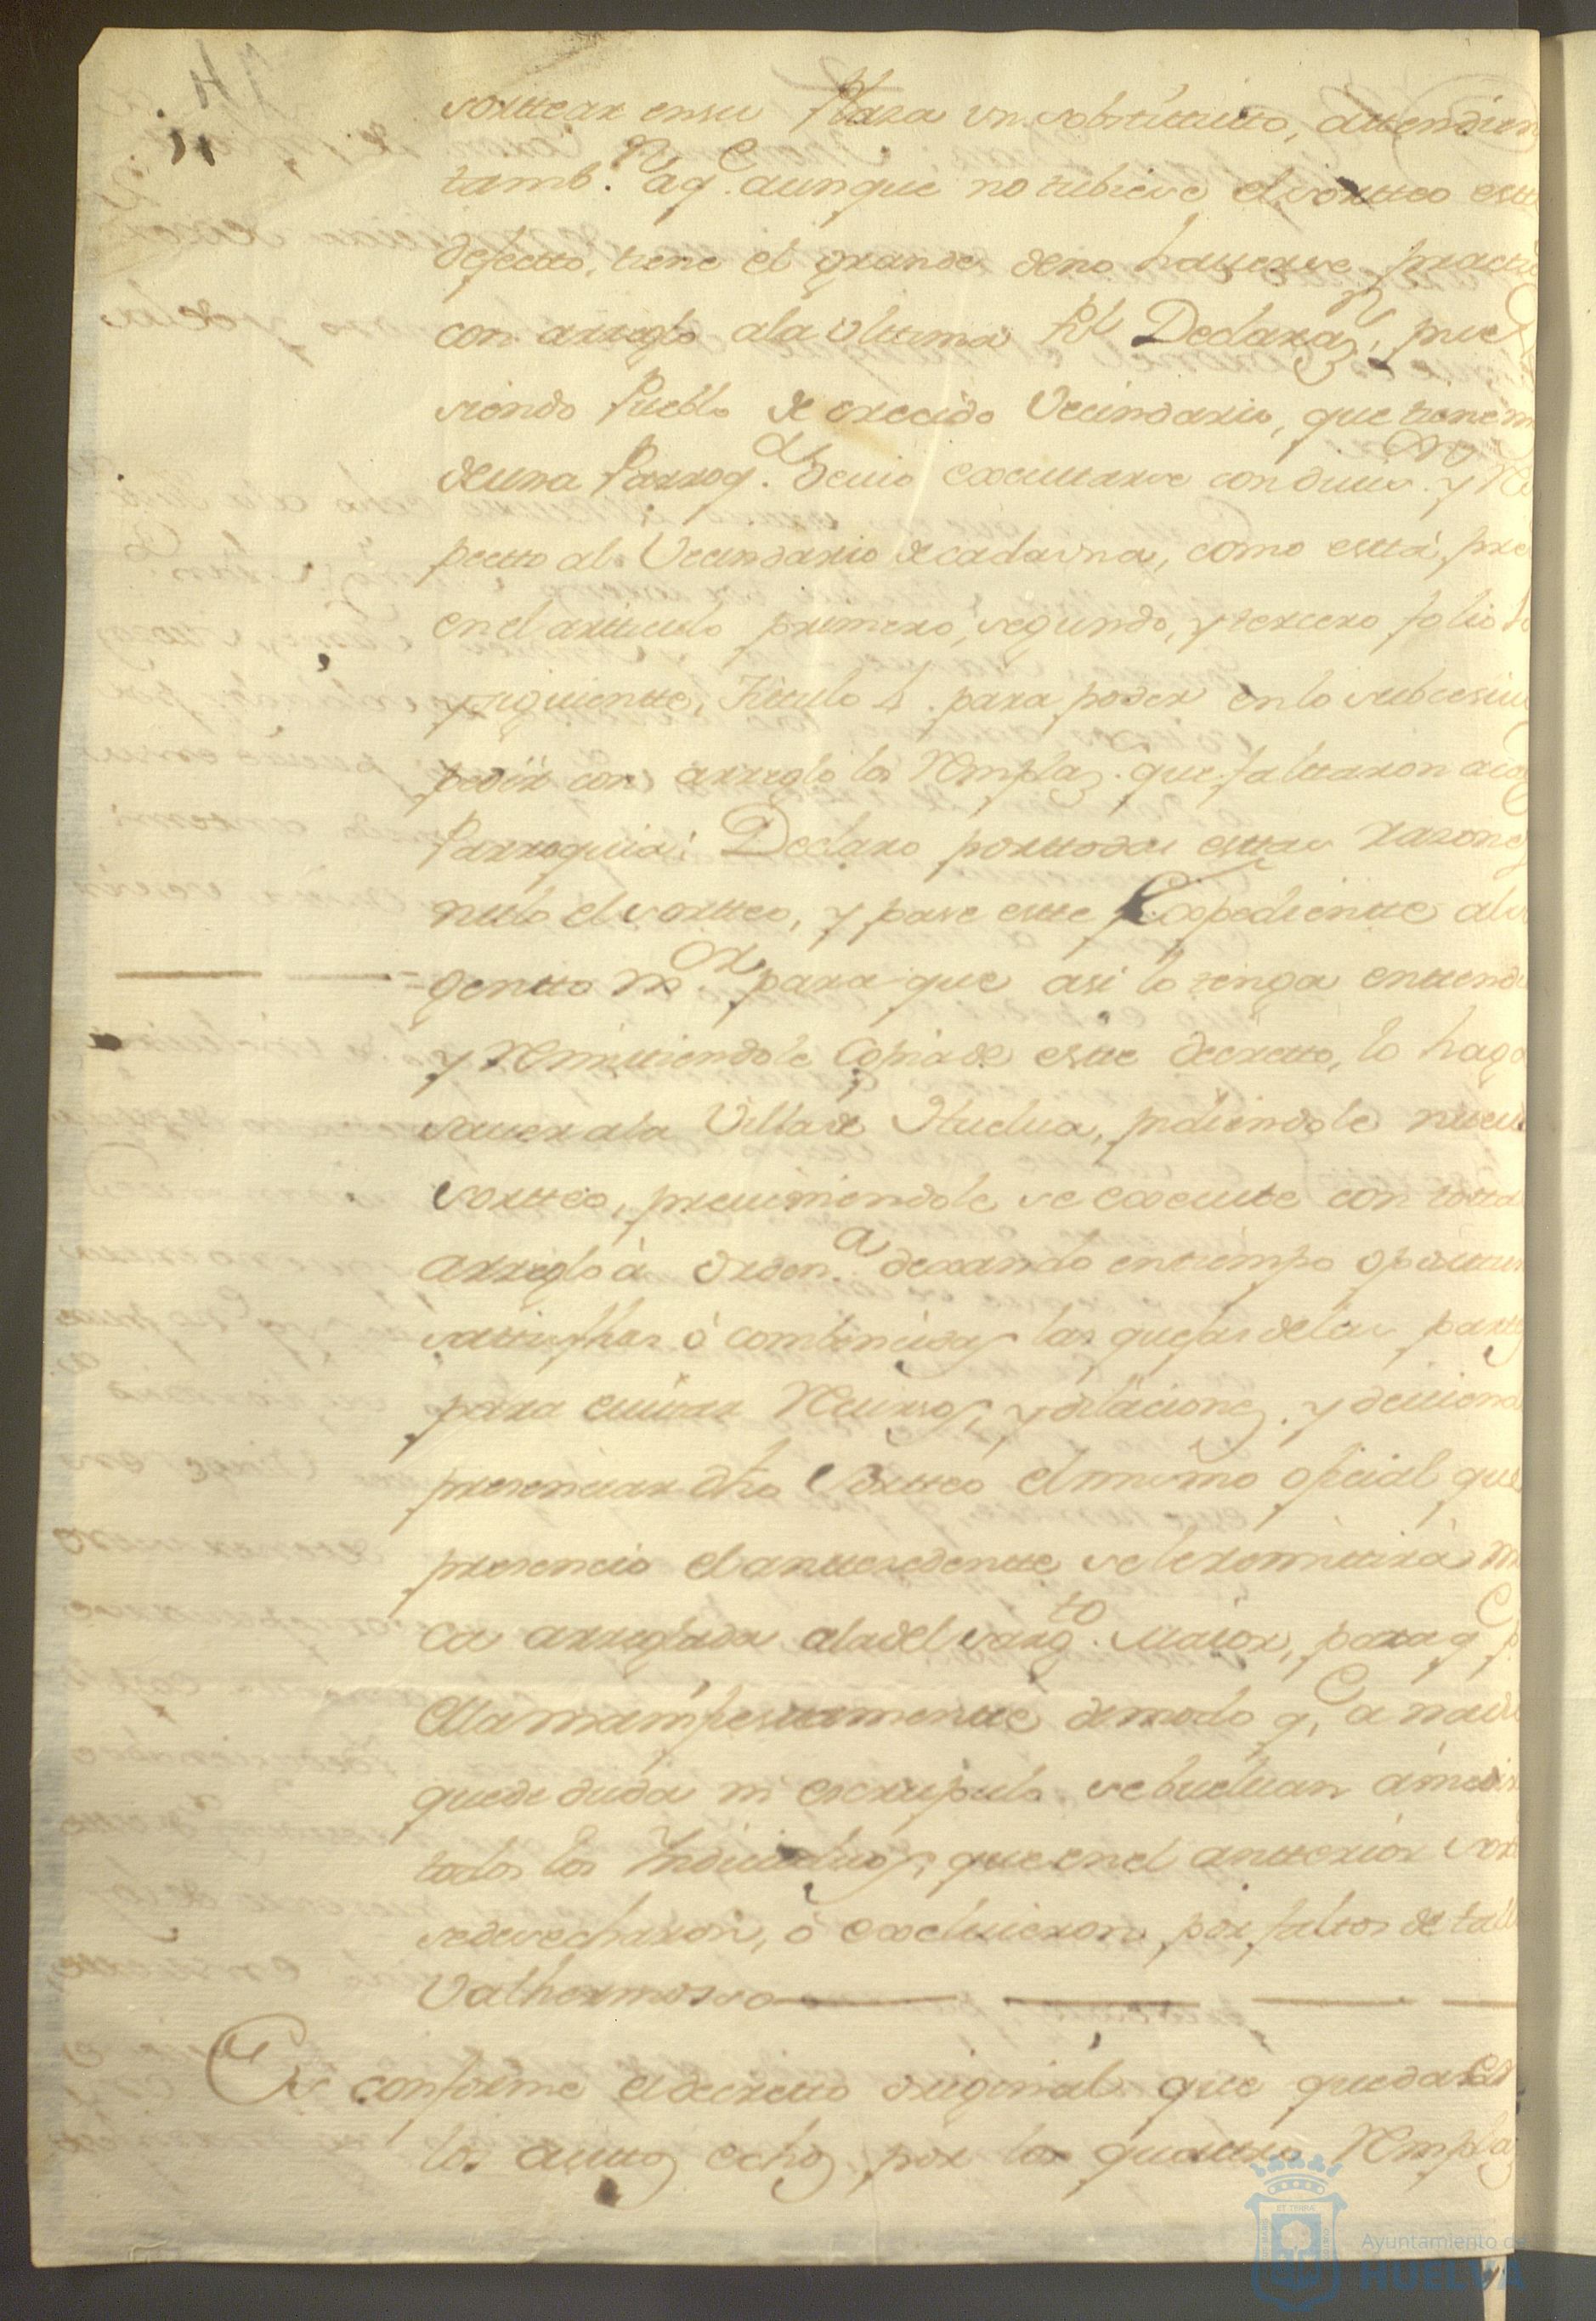 sorttear ensu Plaza un sobstituitto, attendien
tamb.n aq.e aunque no tubiese el sortteo estte
defectto, tiene el grande deno haverse practi
con arreglo ala Ultima Rl Declaraz.n, pues
siendo Pueblo de crecido Vecindario, que tiene m
deuna Parroq.a devio executtarse con y Res
pectto al Vecindario de cada una, como esttá pre
enel artticulo primero, segundo, y tercero folio
y siguientte, Titulo 4. para poder enlo subcesivo
pedir con arreglo los Remplaz. que falttaron a
Parroquia: Declaro porttodas esttas razones
nulo el sortteo, y pase estte Expedientte al
gentto m.or para que asi lo tenga enttendi
y Remittiendole Copia de estte decretto, lo haga
saver ala Villa de Huelva, pidiendole nuevo
sortteo, previniendole se execute con totta
arreglo à Orden.a dexando entiempo oporttun
sattisfhas ò combencidas las quejas delas parttes
para evittar Recursos, y dilaciones. y devien
presenciar dho Sortteo elmismo oficial que
presencio el anttezedentte se leremittirà m
ca arreglada alade el sarg.to Maior, para q.e p
ella manifiesttamentte de modo q.e a nadie
quede duda ni escrupulo se buelvan à medir
todos los Yndividuos, que enel antterior sor
sedesecharon, ò excluieron por faltos de tall
Valhermosso
Es conforme eldecretto original que queda en
los auttos echos por los quattro Rempla
Ayuntamiento de
HUELVA